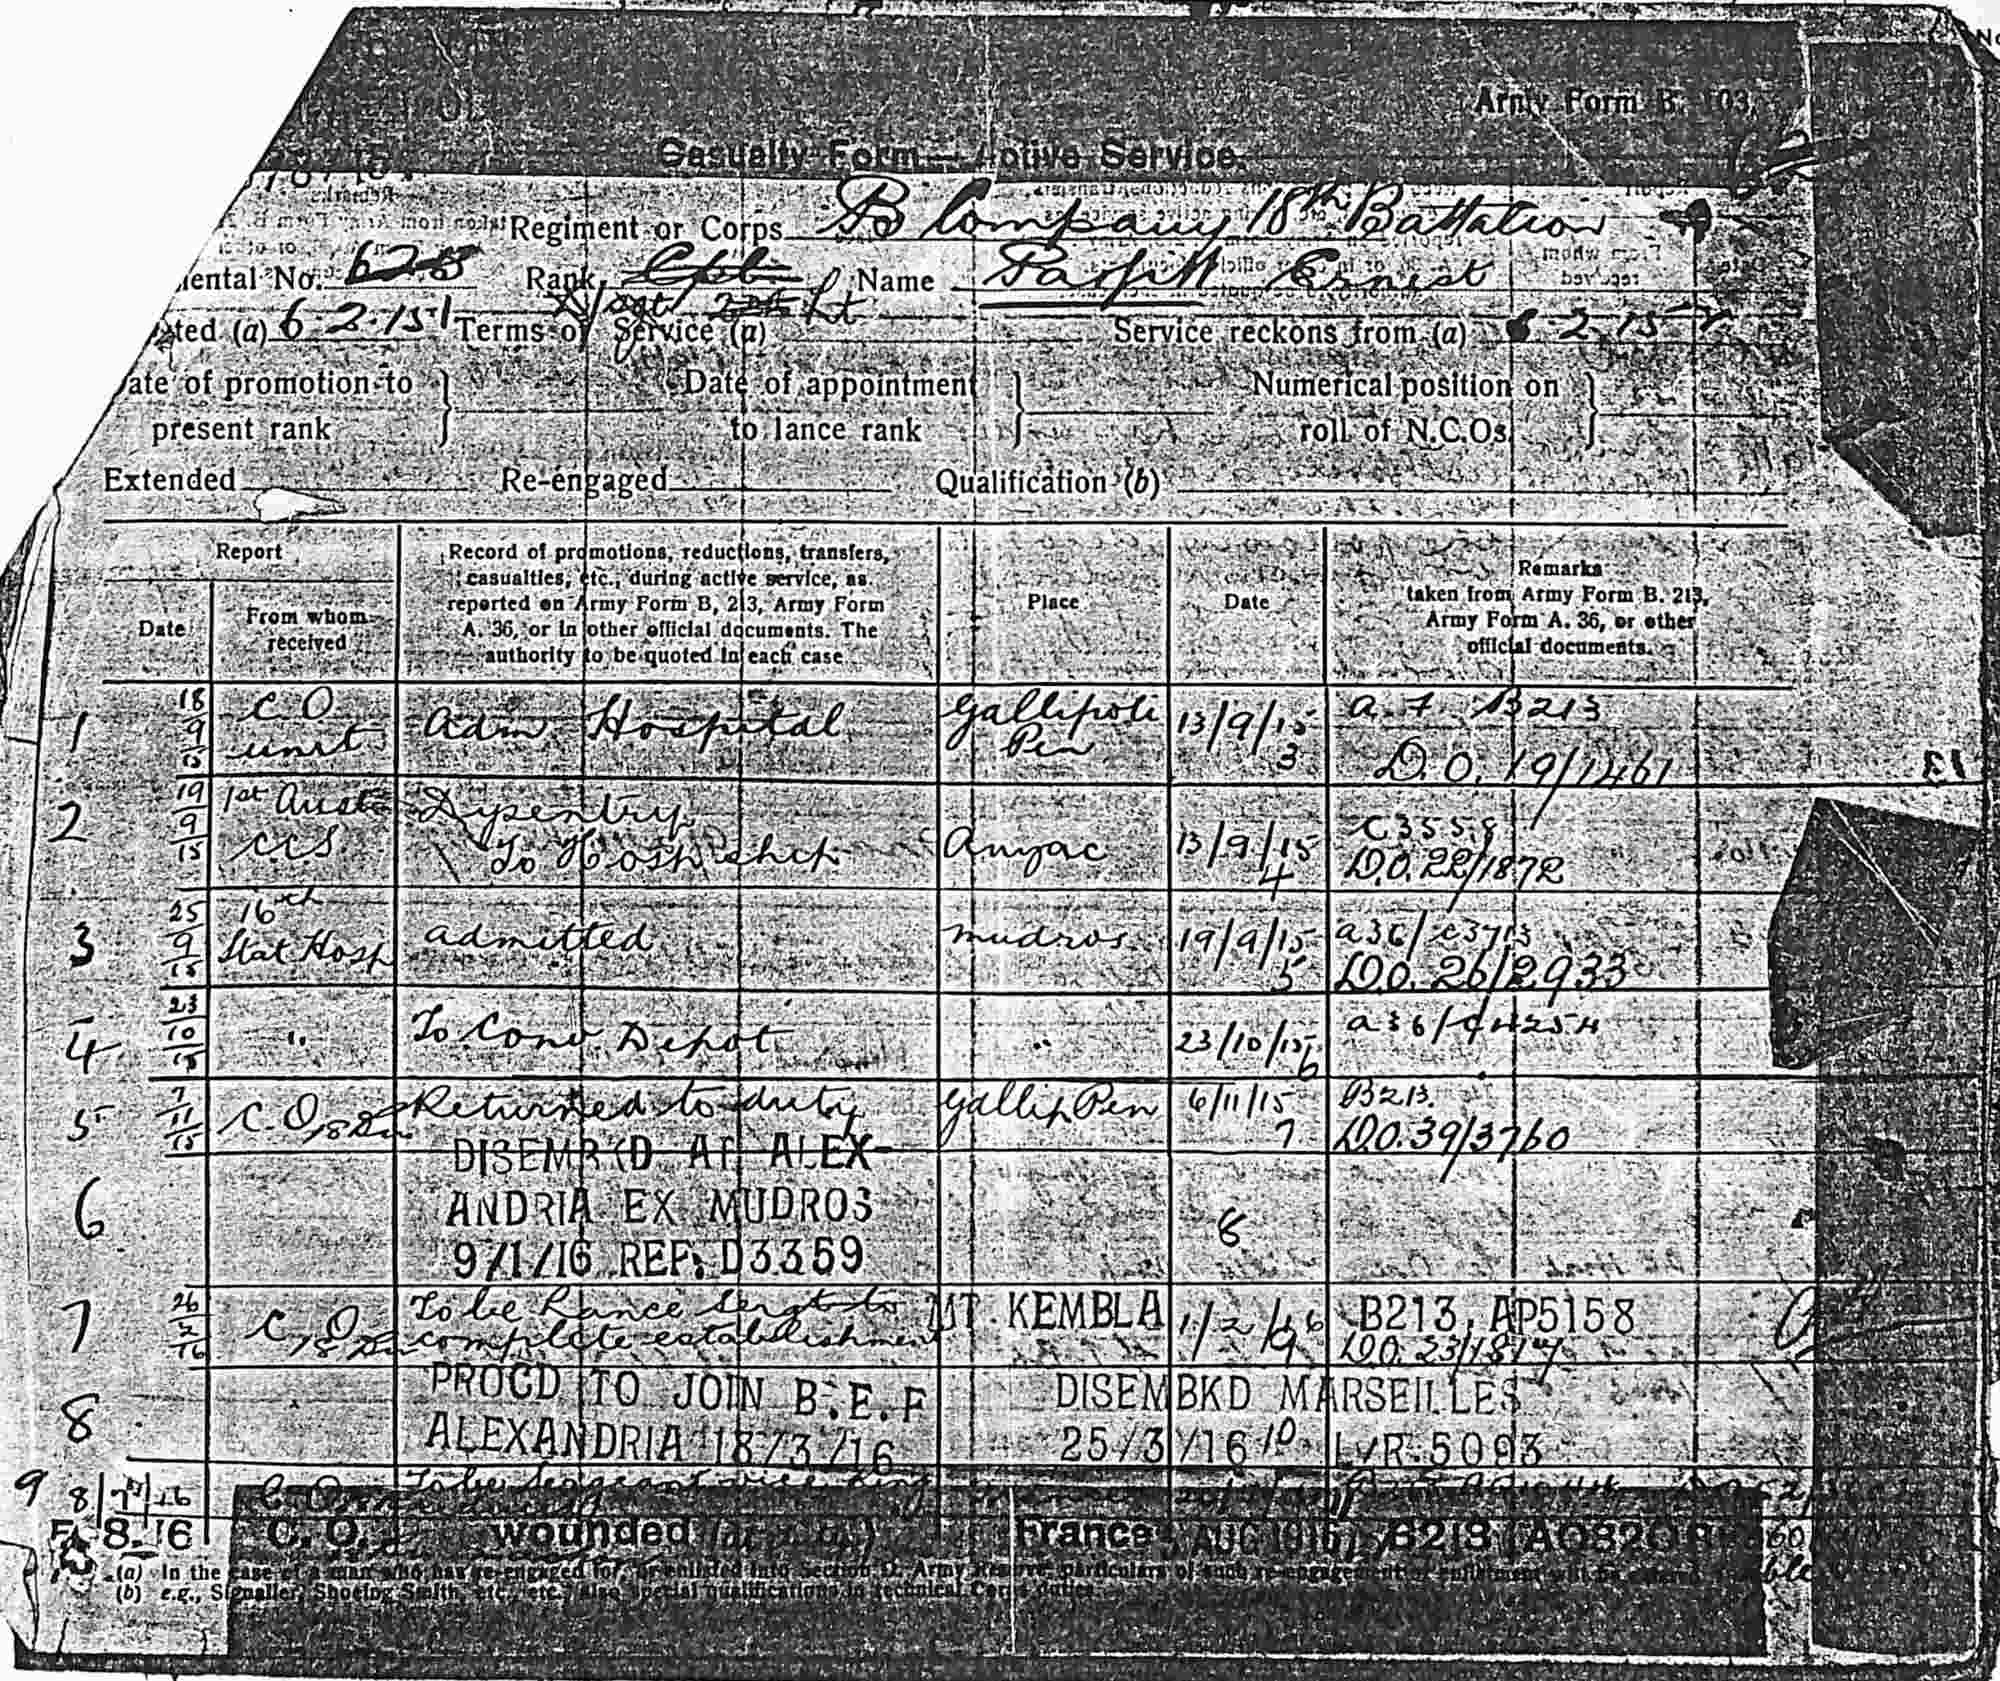 Army Form B. 103.
Casualty Form—Active Service.
Regiment or Corps B Company 18th Battalion
mental No. Rank Cpl Name Ernest
L/Sgt
ted (a) 6-2-15 Terms of Service (a) Service reckons from (a) 6-2-15
ate of promotion to present rank } Date of appointment to lance rank } Numerical position on roll of N.C.Os. }
Extended Re-engaged Qualification (b)
Report
Date
From whom received
Record of promotions, reductions, transfers, casualties, etc., during active service, as reported on Army Form B, 213, Army Form A. 36, or in other official documents. The authority to be quoted in each case
Place
Date
Remarks
taken from Army Form B. 213, Army Form A. 36, or other official documents.
1 18/9/15 C O unit Adm Hospital Gallipoli Pen 13/9/15 3 A.F. B213
D.O. 19/1461
2 19/9/15 1st Aust CCS Dysentry To Hosp ship Anzac 13/9/15 4 C3558
D.O. 22/1872
3 25/9/15 16th Stat Hosp admitted mudros 19/9/15 5 a36/c3713
D.O. 26/2933
4 23/10/15 " To Conv. Depot " 23/10/15 6 a36/c4254
5 7/11/15 C.O. 18 Bn Returned to duty Gallip Pen 6/11/15 7 B213.
D.O. 39/3760
6 DISEMBKD AT ALEX-
ANDRIA EX MUDROS 8
9/1/16 REF: D3359
7 26/2/16 C.O. 18 Bn To be Lance Sergt to complete establishment MT. KEMBLA 1/2/16 9 B213, AP5158
D.O. 23/1817
8 PROCD TO JOIN B.E.F DISEMBKD MARSEILLES
ALEXANDRIA 18/3/16 25/3/16 10 L/R 5093
9 8 16 C.O. To be Sergeant vice King
8. 16 C. O. wounded France AUG 1916 B213
(a) In the case of a man who has re-engaged for, or enlisted into Section D. Army Reserve, particulars of such re-engagement or enlistment will be entered.
(b) e.g., Signaller, Shoeing Smith, etc., etc., also special qualifications in technical Corps duties.
13